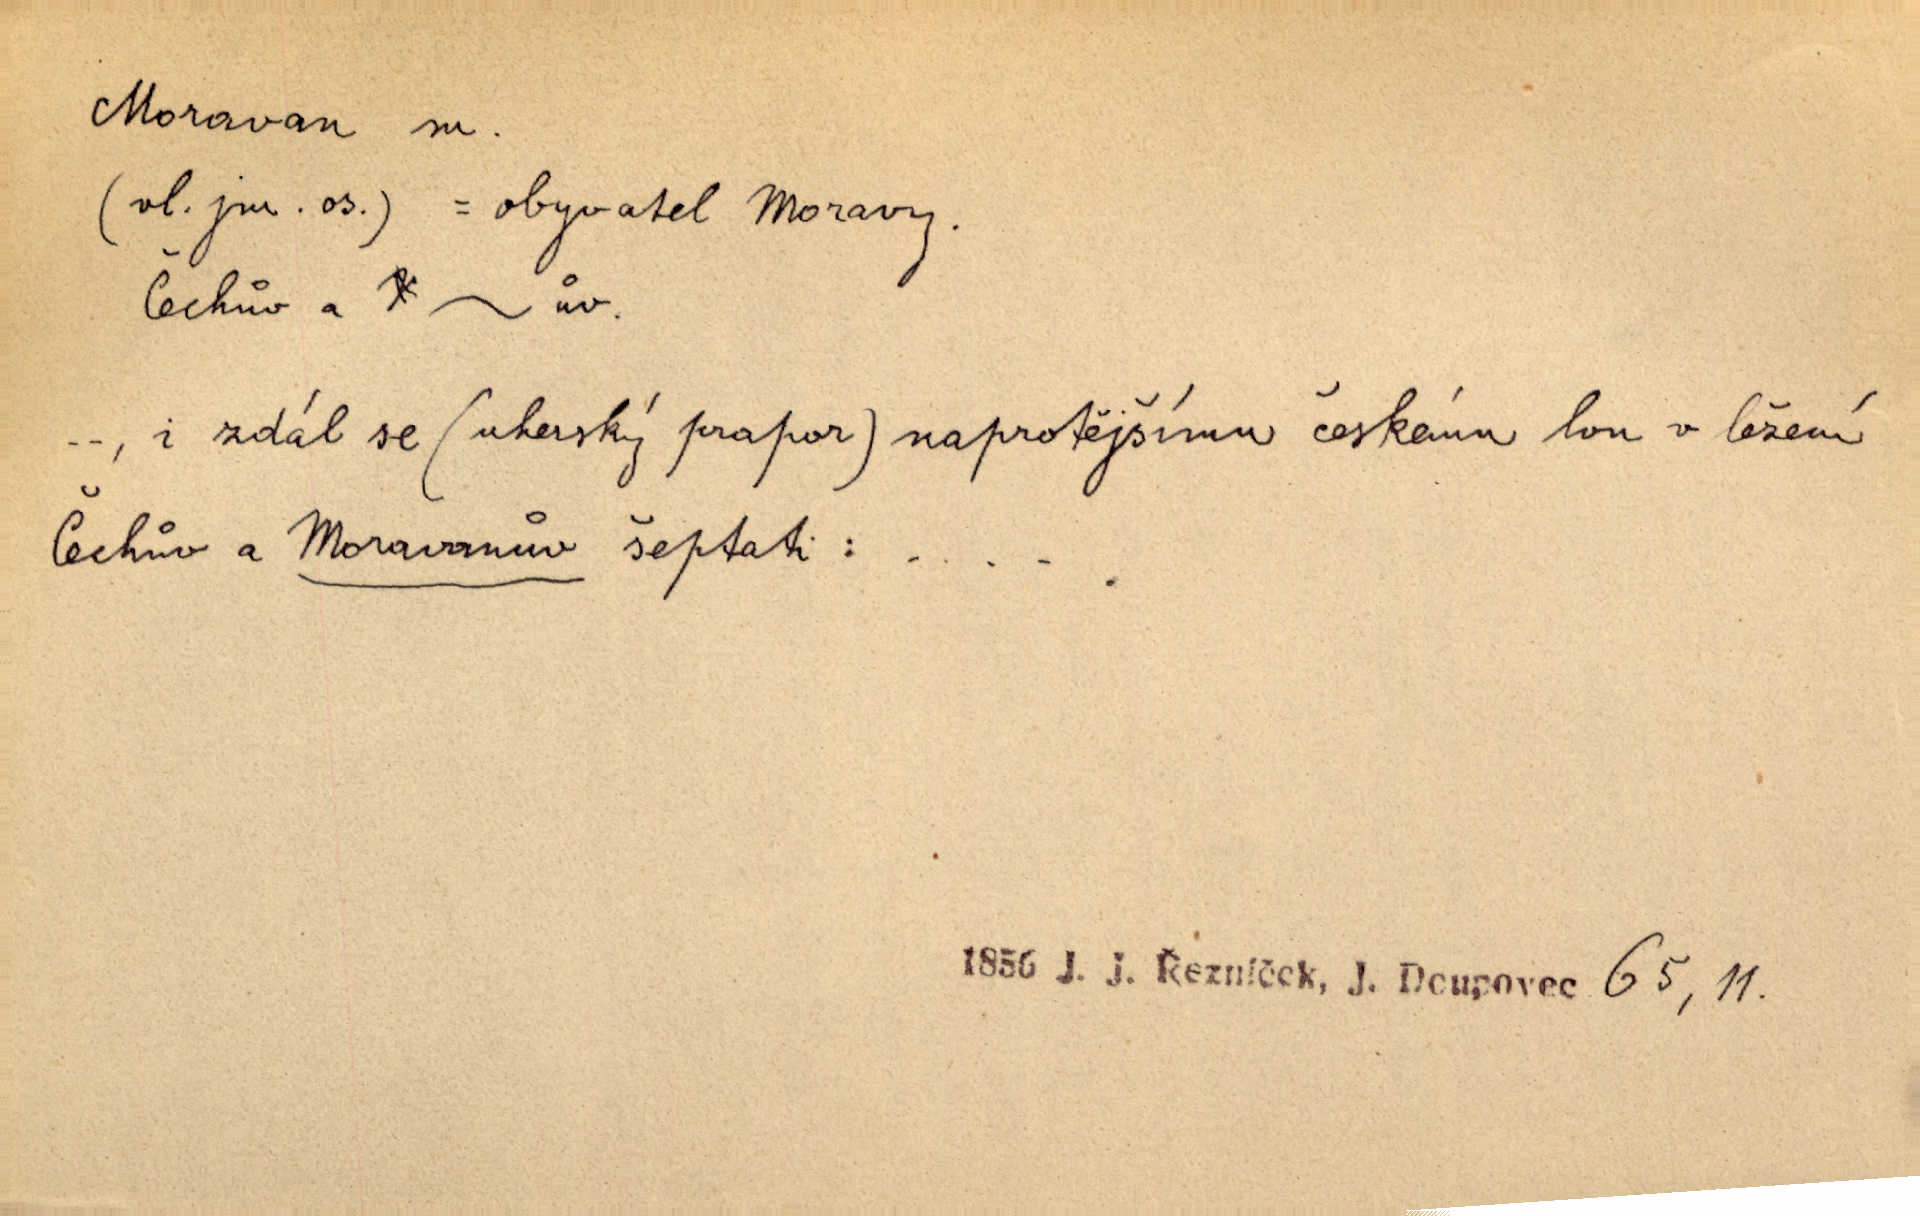 Moravan m.
(vl. jm. os.) = obyvatel Moravy.
Čechův a ~ ův.
--, i zdál se (uherský prapor) naprotějšímu českému lvu v léžení
Čechův a Moravanův šeptati: . . . - .
1856 J. J. Řezníček, J. Doupovec 65, 11.